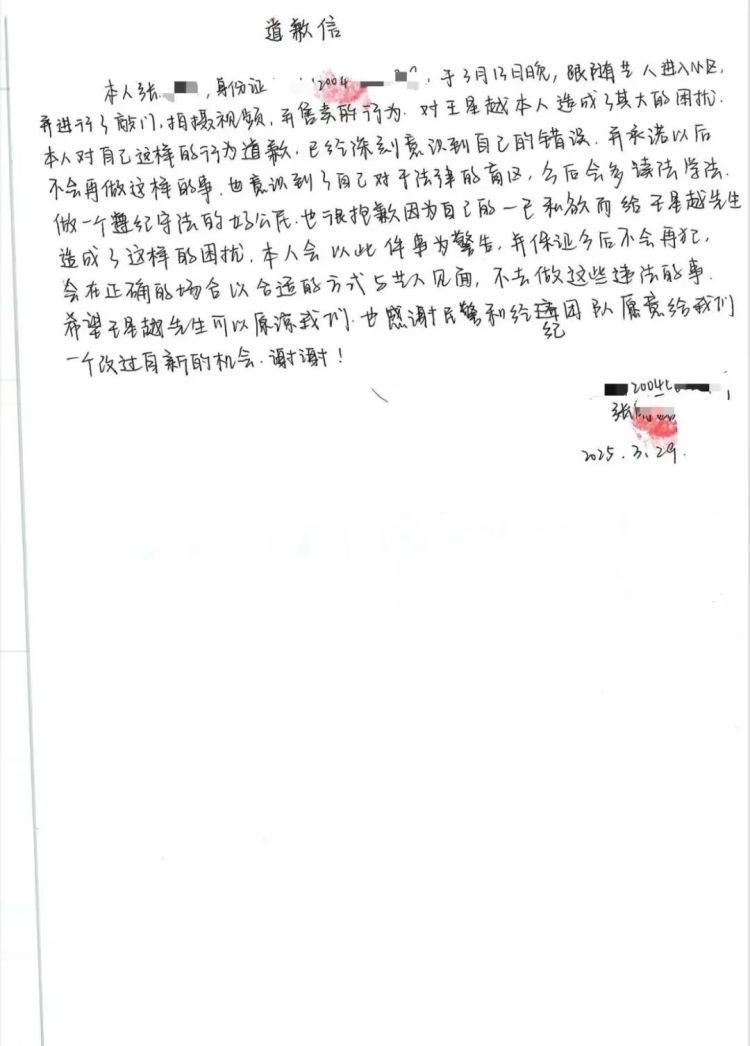 道歉信
本人张 ,身份证 2004 ,于3月13日晚,跟随艺人进入小区,
并进行了敲门,拍摄视频,并售卖的行为.对王星越本人造成了其大的困扰.
本人对自己这样的行为道歉,已经深刻意识到自己的错误.并承诺以后
不会再做这样的事.也意识到了自己对于法律的盲区,今后会多读法学法.
做一个遵纪守法的好公民.也很抱歉因为自己的一己私欲而给王星越先生
造成了这样的困扰,本人会以此件事为警告,并保证今后不会再犯,
会在正确的场合以合适的方式与艺人见面,不去做这些违法的事.
希望王星越先生可以原谅我们.也感谢民警和经纪团队愿意给我们
一个改过自新的机会.谢谢!
2004
张
2025.3.29.